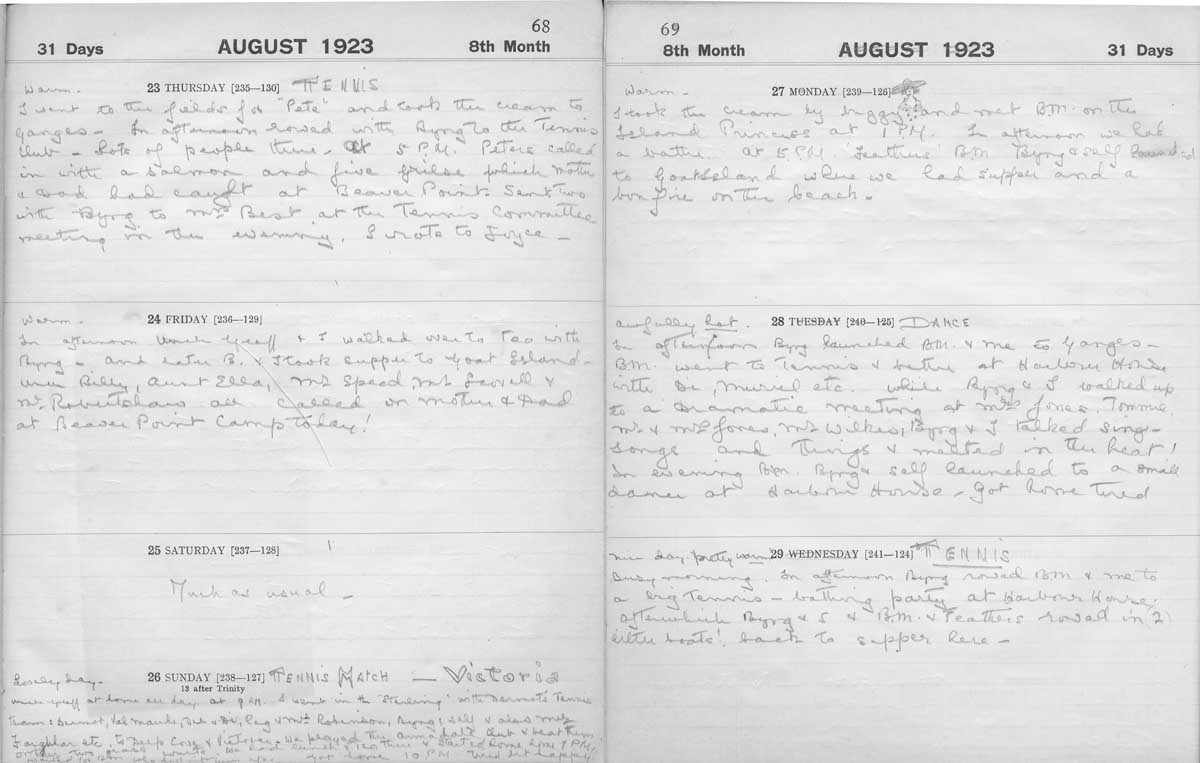 68
31 Days AUGUST 1923 8th Month
Warm. 23 THURSDAY [235—130] TENNIS
I went to the fields for "Pete" and took the cream to
Ganges - In afternoon rowed with Byng to the Tennis
Club - Lots of people there. At 5 P.M. Peters called
in with a salmon and five grilse which mother
& Dad had caught at Beaver Point. Sent two
with Byng to Mrs Best at the Tennis Committee
meeting in the evening. I wrote to Joyce -
Warm. 24 FRIDAY [236—129]
In afternoon Uncle Geoff & I walked over to Tea with
Byng - and later B. & I took supper to Goat Island -
Billy, Aunt Ella, Mrs Speed &
Mr Robertshaw all called on Mother & Dad
at Beaver Point Camp today!
25 SATURDAY [237—128]
Much as usual -
Lovely day - 26 SUNDAY [238—127] TENNIS MATCH — VICTORIA
13 after Trinity
Uncle Geoff at home all day. at 9 A.M. I went in the 'Sterling' with Dermot's Tennis
team: Dermot, Robinson, Byng, self & also
etc. to Deep Cove & Victoria - we played the Club & beat them
started home
got home 10 P.M. tired but happy
69
8th Month AUGUST 1923 31 Days
Warm - 27 MONDAY [239—126]
I took the cream by buggy and met B.M. on the
Island Princess at 1 P.M. In afternoon we had
a bathe. at 5 P.M. 'Feathers' B.M. Byng & self launched
to Goat Island where we had supper and a
bonfire on the beach -
awfully hot. 28 TUESDAY [240—125] DANCE
In afternoon Byng launched B.M. & me to Ganges -
B.M. went to Tennis & bathe at Harbour House
with Di, Muriel etc. while Byng & I walked up
to a dramatic meeting at Mrs Jones. Tommie,
Mr & Mrs Jones, Mr Wilkes, Byng & I talked sing-
songs and things & melted in the heat!
In evening B.M. Byng & self launched to a small
dance at Harbour House - Got home tired
nice day pretty warm 29 WEDNESDAY [241—124] TENNIS
Busy morning. In afternoon Byng rowed B.M. & me to
a big Tennis - bathing party at Harbour House.
after which Byng & I & B.M. & Feathers rowed in (2)
little boats! back to supper here -